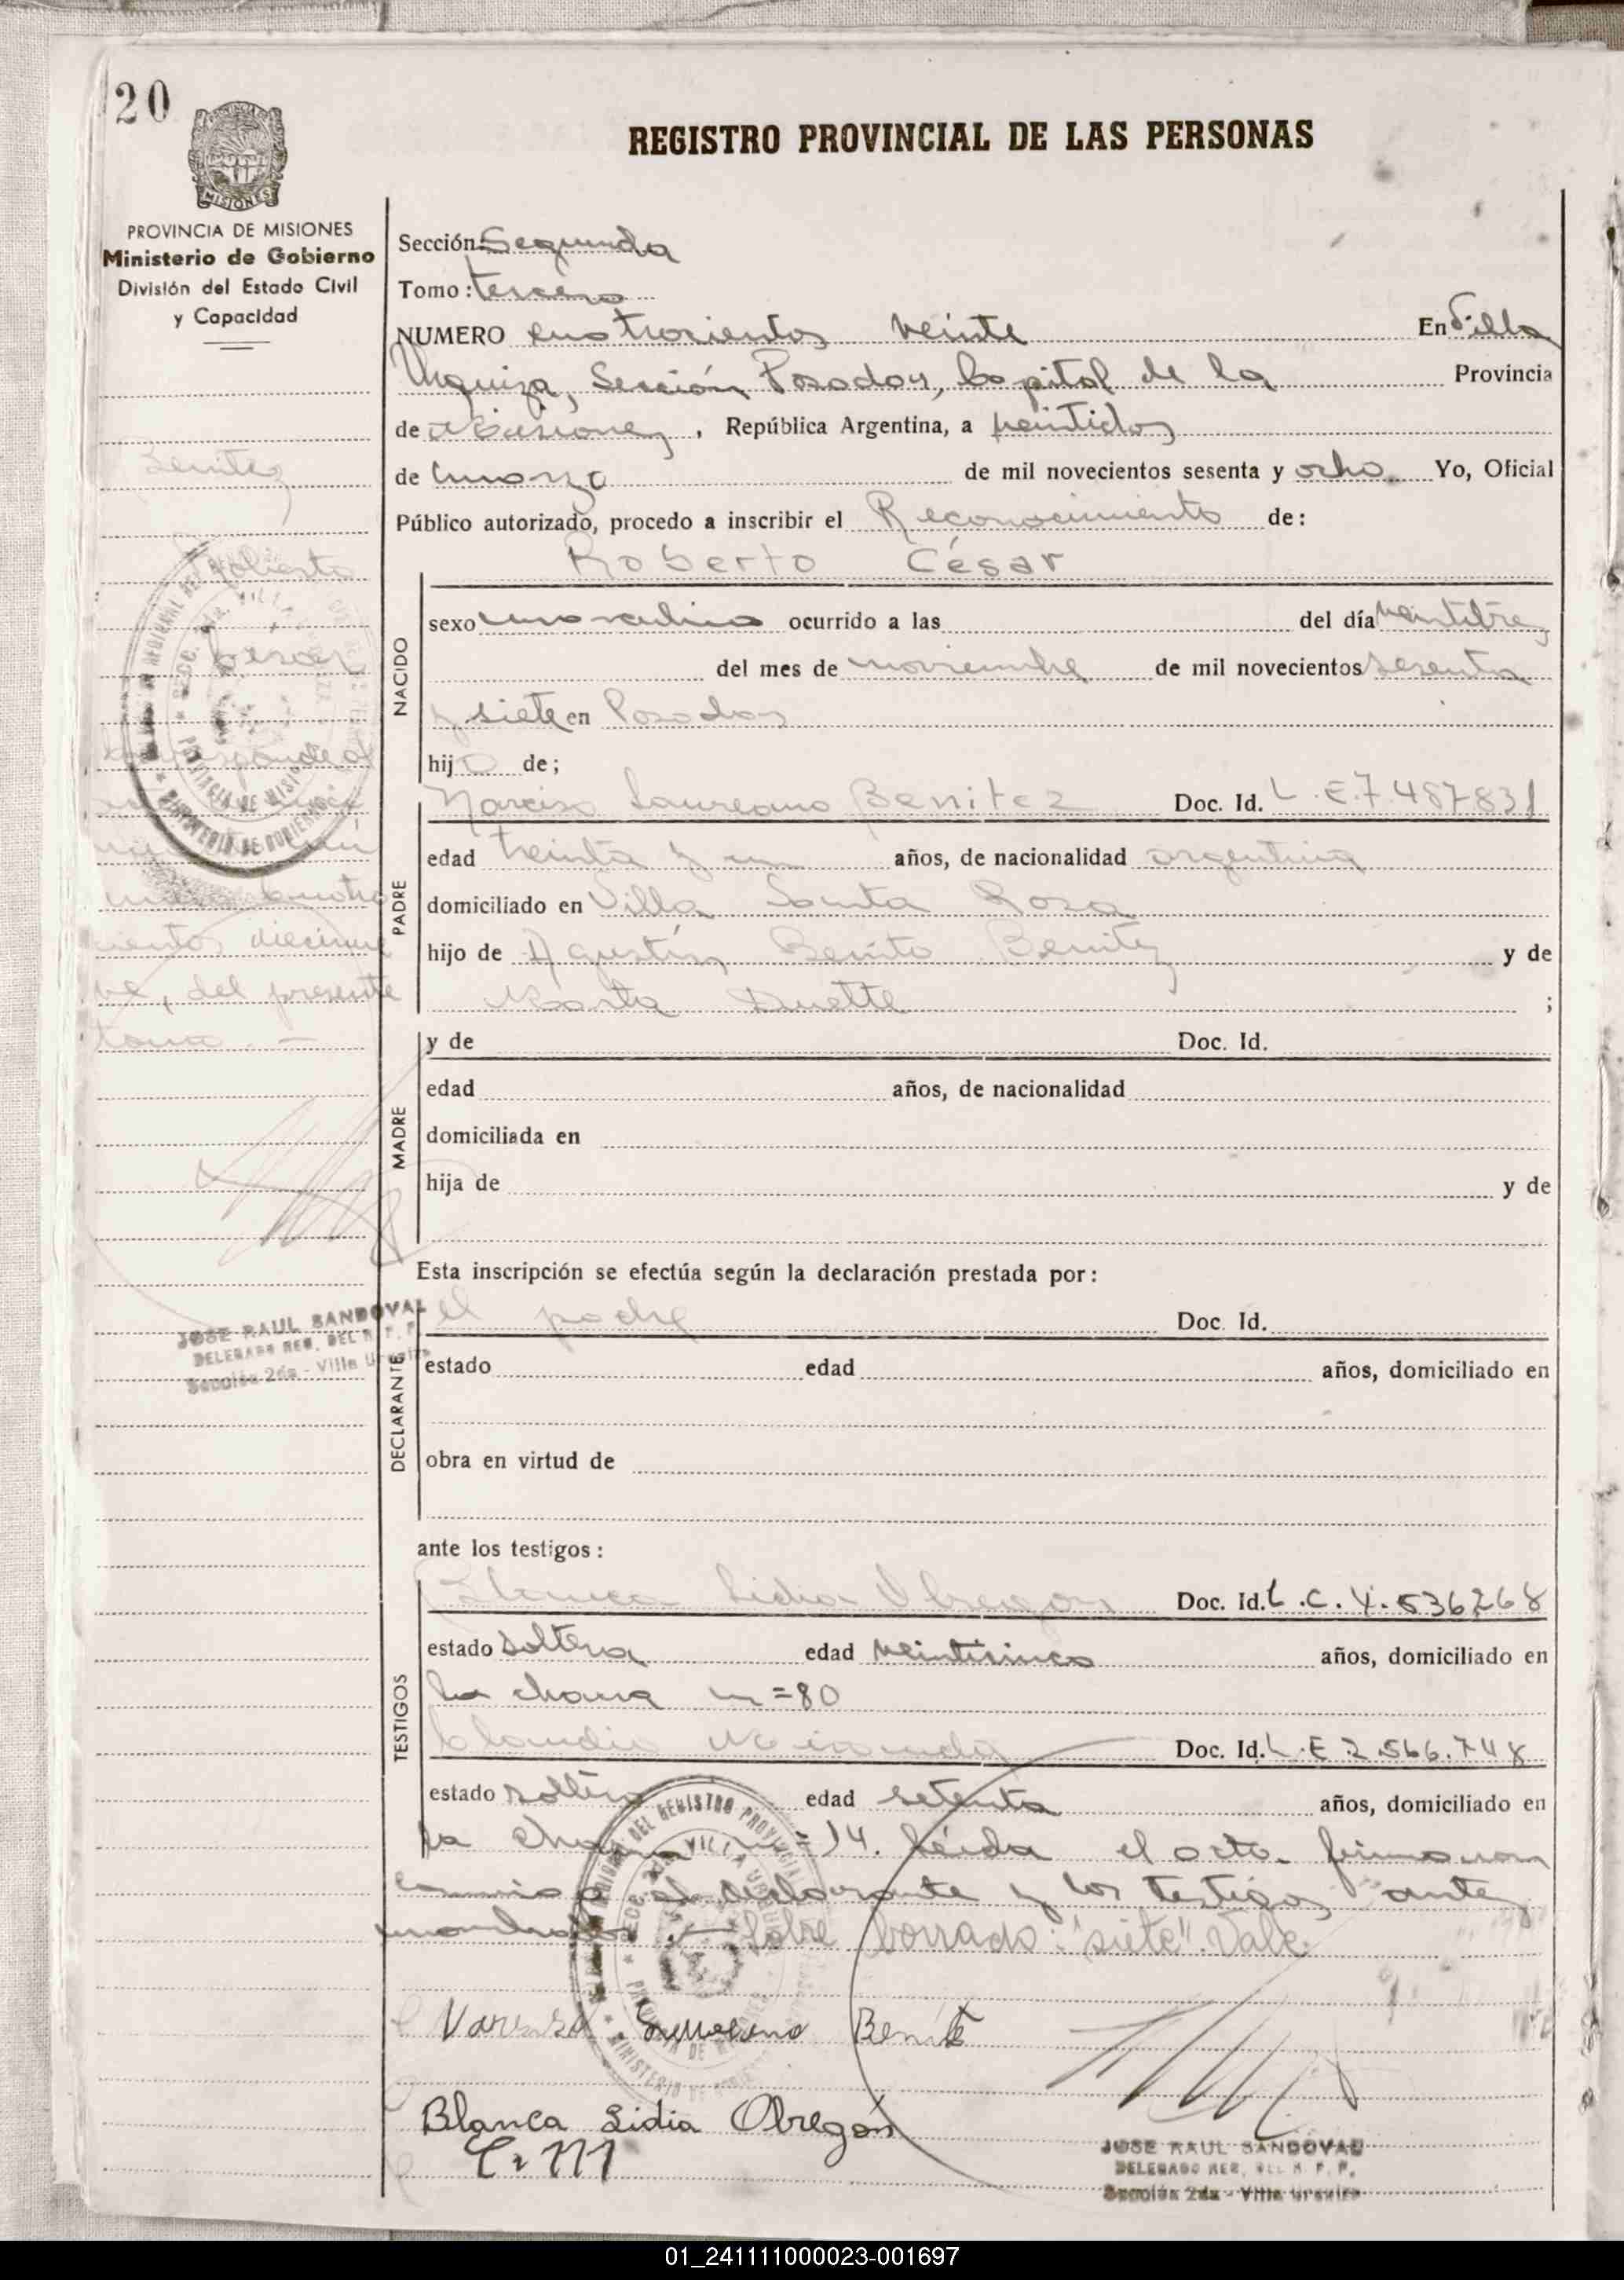 20
REGISTRO PROVINCIAL DE LAS PERSONAS
MISIONES
PROVINCIA DE MISIONES
Ministerio de Gobierno
División del Estado Civil
y Capacidad
Sección: Segunda
Tomo: tercero
NUMERO cuatrocientos veinte En Villa
Urquiza, Sección Posadas, Capital de la Provincia
de Misiones, República Argentina, a veintidos
de marzo de mil novecientos sesenta y ocho Yo, Oficial
Público autorizado, procedo a inscribir el Reconocimiento de:
Roberto César
NACIDO
sexo masculino ocurrido a las del día veintitres
del mes de noviembre de mil novecientos sesenta
y siete en Posadas
hijo de;
PADRE
Narciso Laureano Benitez Doc. Id. L.E.7.487.831
edad treinta y un años, de nacionalidad argentina
domiciliado en Villa Santa Rosa
hijo de Agustín Benito Benitez y de
Marta Duette ;
MADRE
y de Doc. Id.
edad años, de nacionalidad
domiciliada en
hija de y de
Esta inscripción se efectúa según la declaración prestada por:
DECLARANTE
el padre Doc. Id.
estado edad años, domiciliado en
obra en virtud de
ante los testigos:
TESTIGOS
Blanca Lidia Obregón Doc. Id. L.C.4.536268
estado soltera edad veinticinco años, domiciliado en
la chacra n=80
Claudio Miranda Doc. Id. L.E 2.566.748
estado soltero edad setenta años, domiciliado en
la chacra n=14. Leída el acta. firmaron
conmigo el declarante y los testigos antes
nombrados.- Sobre borrado: "siete". Vale.
Narciso Laureano Benite
Blanca Lidia Obregón
C. M
JOSE RAUL SANDOVAL
DELEGADO REG. DEL R. P. P.
Sección 2da - Villa Urquiza
Benitez
Roberto
Cesar
corresponde al
cientos diecinue
ve, del presente
tomo. -
JOSE RAUL SANDOVAL
DELEGADO REG. DEL R. P. P.
Sección 2da - Villa Urquiza
01_241111000023-001697